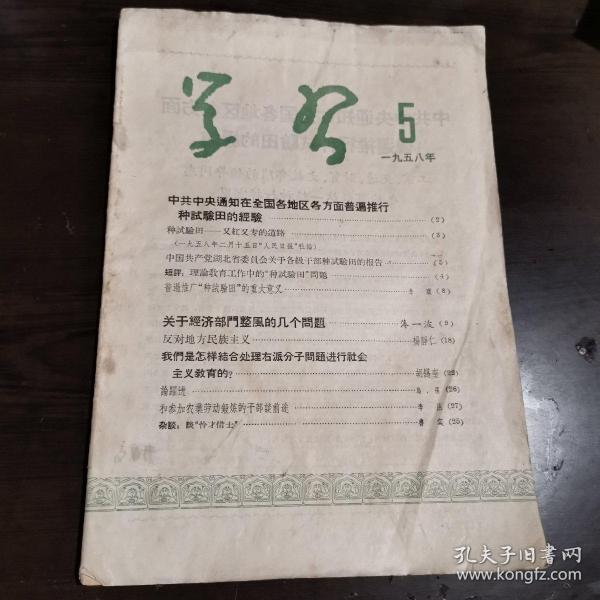 学习
5
一九五八年
中共中央通知在全国各地区各方面普遍推行
种試驗田的經驗 (2)
种試驗田——又紅又专的道路 (3)
(一九五八年二月十五日"人民日报"社論)
中国共产党湖北省委員会关于各級干部种試驗田的报告 (5)
短評: 理論教育工作中的"种試驗田"問題 (4)
普遍推广"种試驗田"的重大意义 (8)
关于經济部門整風的几个問題 薄一波 (9)
反对地方民族主义 楊靜仁 (18)
我們是怎样結合处理右派分子問題进行社会
主义教育的? (22)
論躍进 (26)
和参加农業劳动鍛煉的干部談前途 (27)
杂談: 談"怜才惜士" (25)
孔夫子旧书网
www.kongfz.com